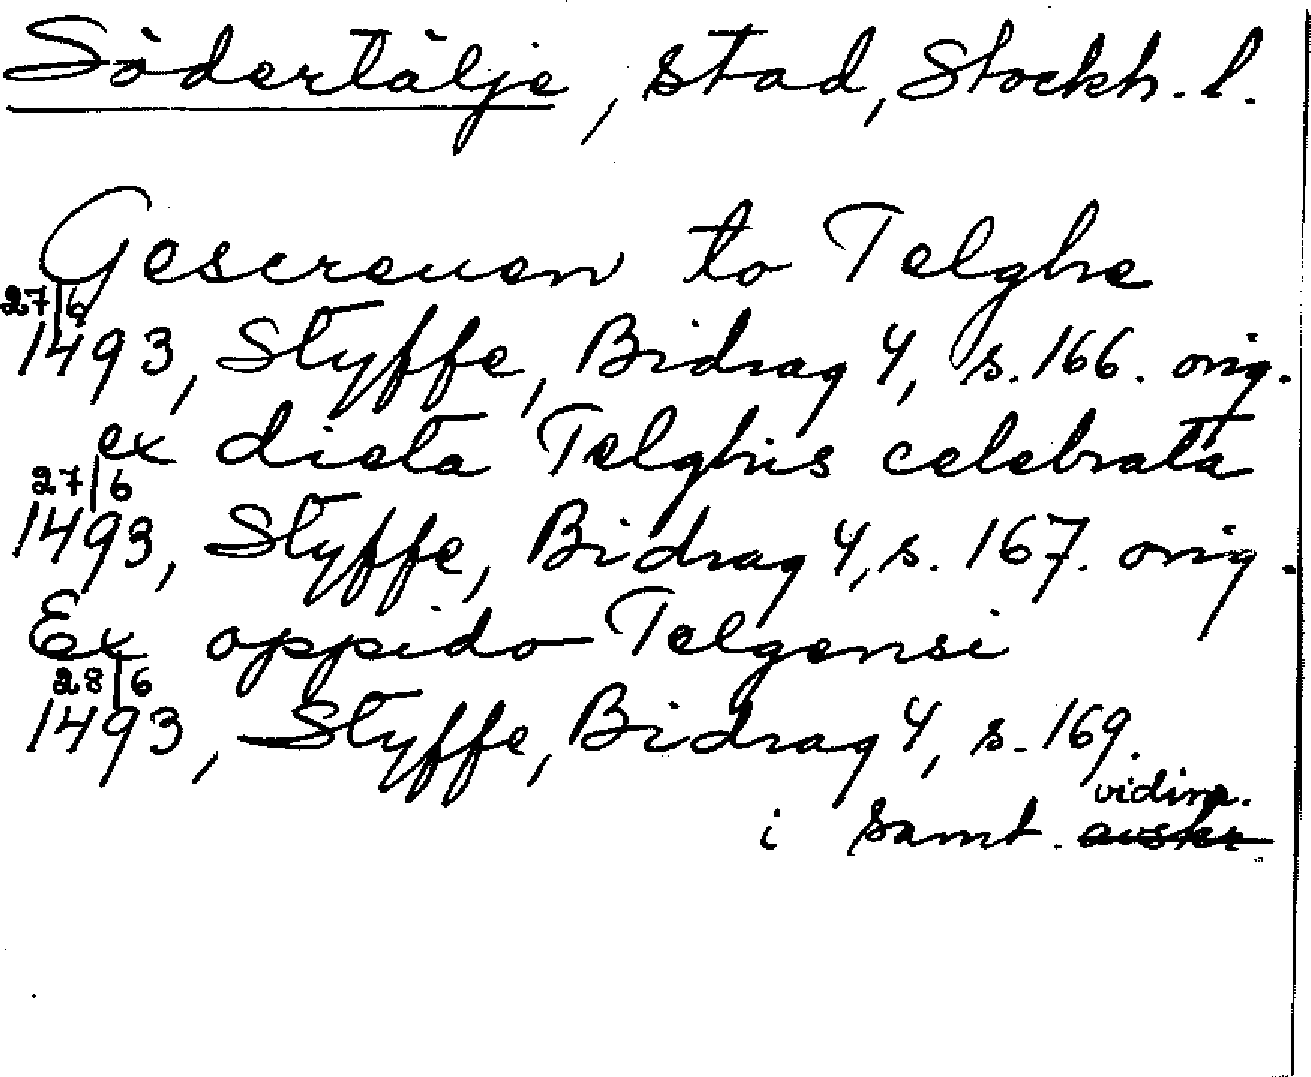 Södertälje, stad, Stockh. l.
Gescreuen to Telghe
27/6
1493, Styffe, Bidrag 4, s. 166. orig.
ex dieta Telghis celebrata
27/6
1493, Styffe, Bidrag 4, s. 167. orig.
Ex oppido Telgensi
28/6
1493, Styffe, Bidrag 4, s. 169.
vidim.
i samt. avskr